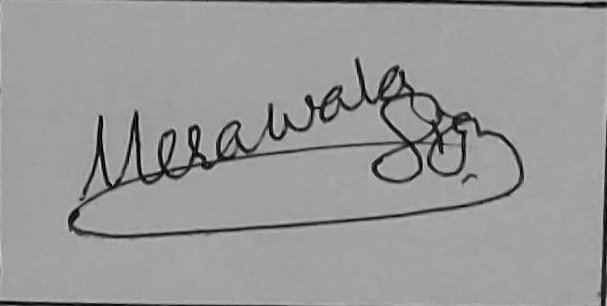 Merawala
Sign